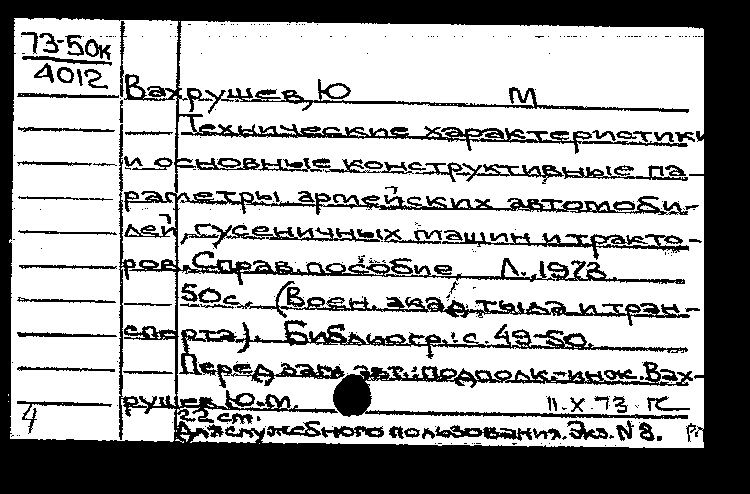 73-50к
4012
Вахрушев, Ю М
Технические характеристики
и основные конструктивные па-
раметры армейских автомоби-
лей, гусеничных машин и тракто-
ров. Справ. пособие. Л., 1973.
50с. (Воен. акад. тыла и тран-
спорта). Библиогр.: с. 49-50.
Перед загл. авт.: подполк.-инж. Вах-
рушев Ю.М.
11.X.73.
22 cm.
Для служебного пользования. Экз. N 8.
4